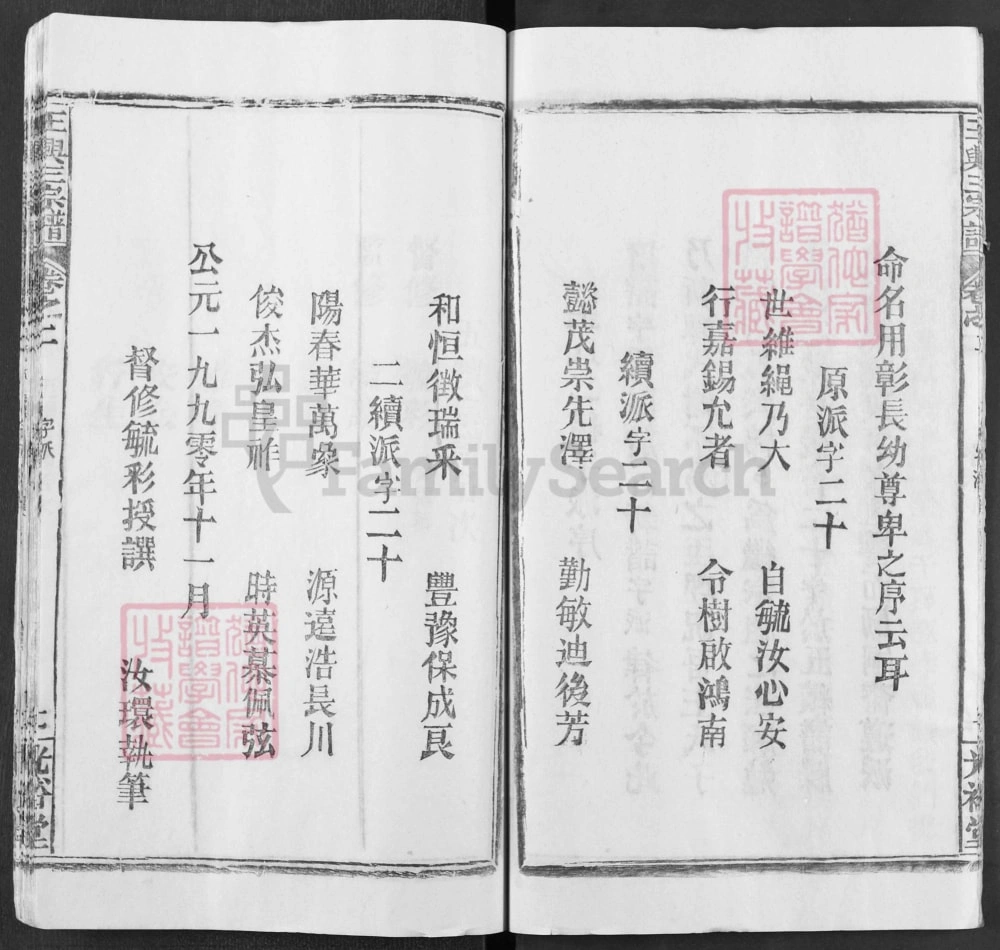 命名用彰長幼尊卑之序云耳
原派字二十
世維繩乃大 自毓汝心安
行嘉錫允者 令樹啟鴻南
續派字二十
懿茂崇先澤 勤敏迪後芳
和恒徵瑞采 豐豫保成良
二續派字二十
陽春華萬象 源遠浩長川
俊杰弘皇祚 時英慕佩弦
公元一九九零年十一月
督修毓彩授譔 汝環執筆
王興三宗譜 卷之二 字派 光裕堂
FamilySearch